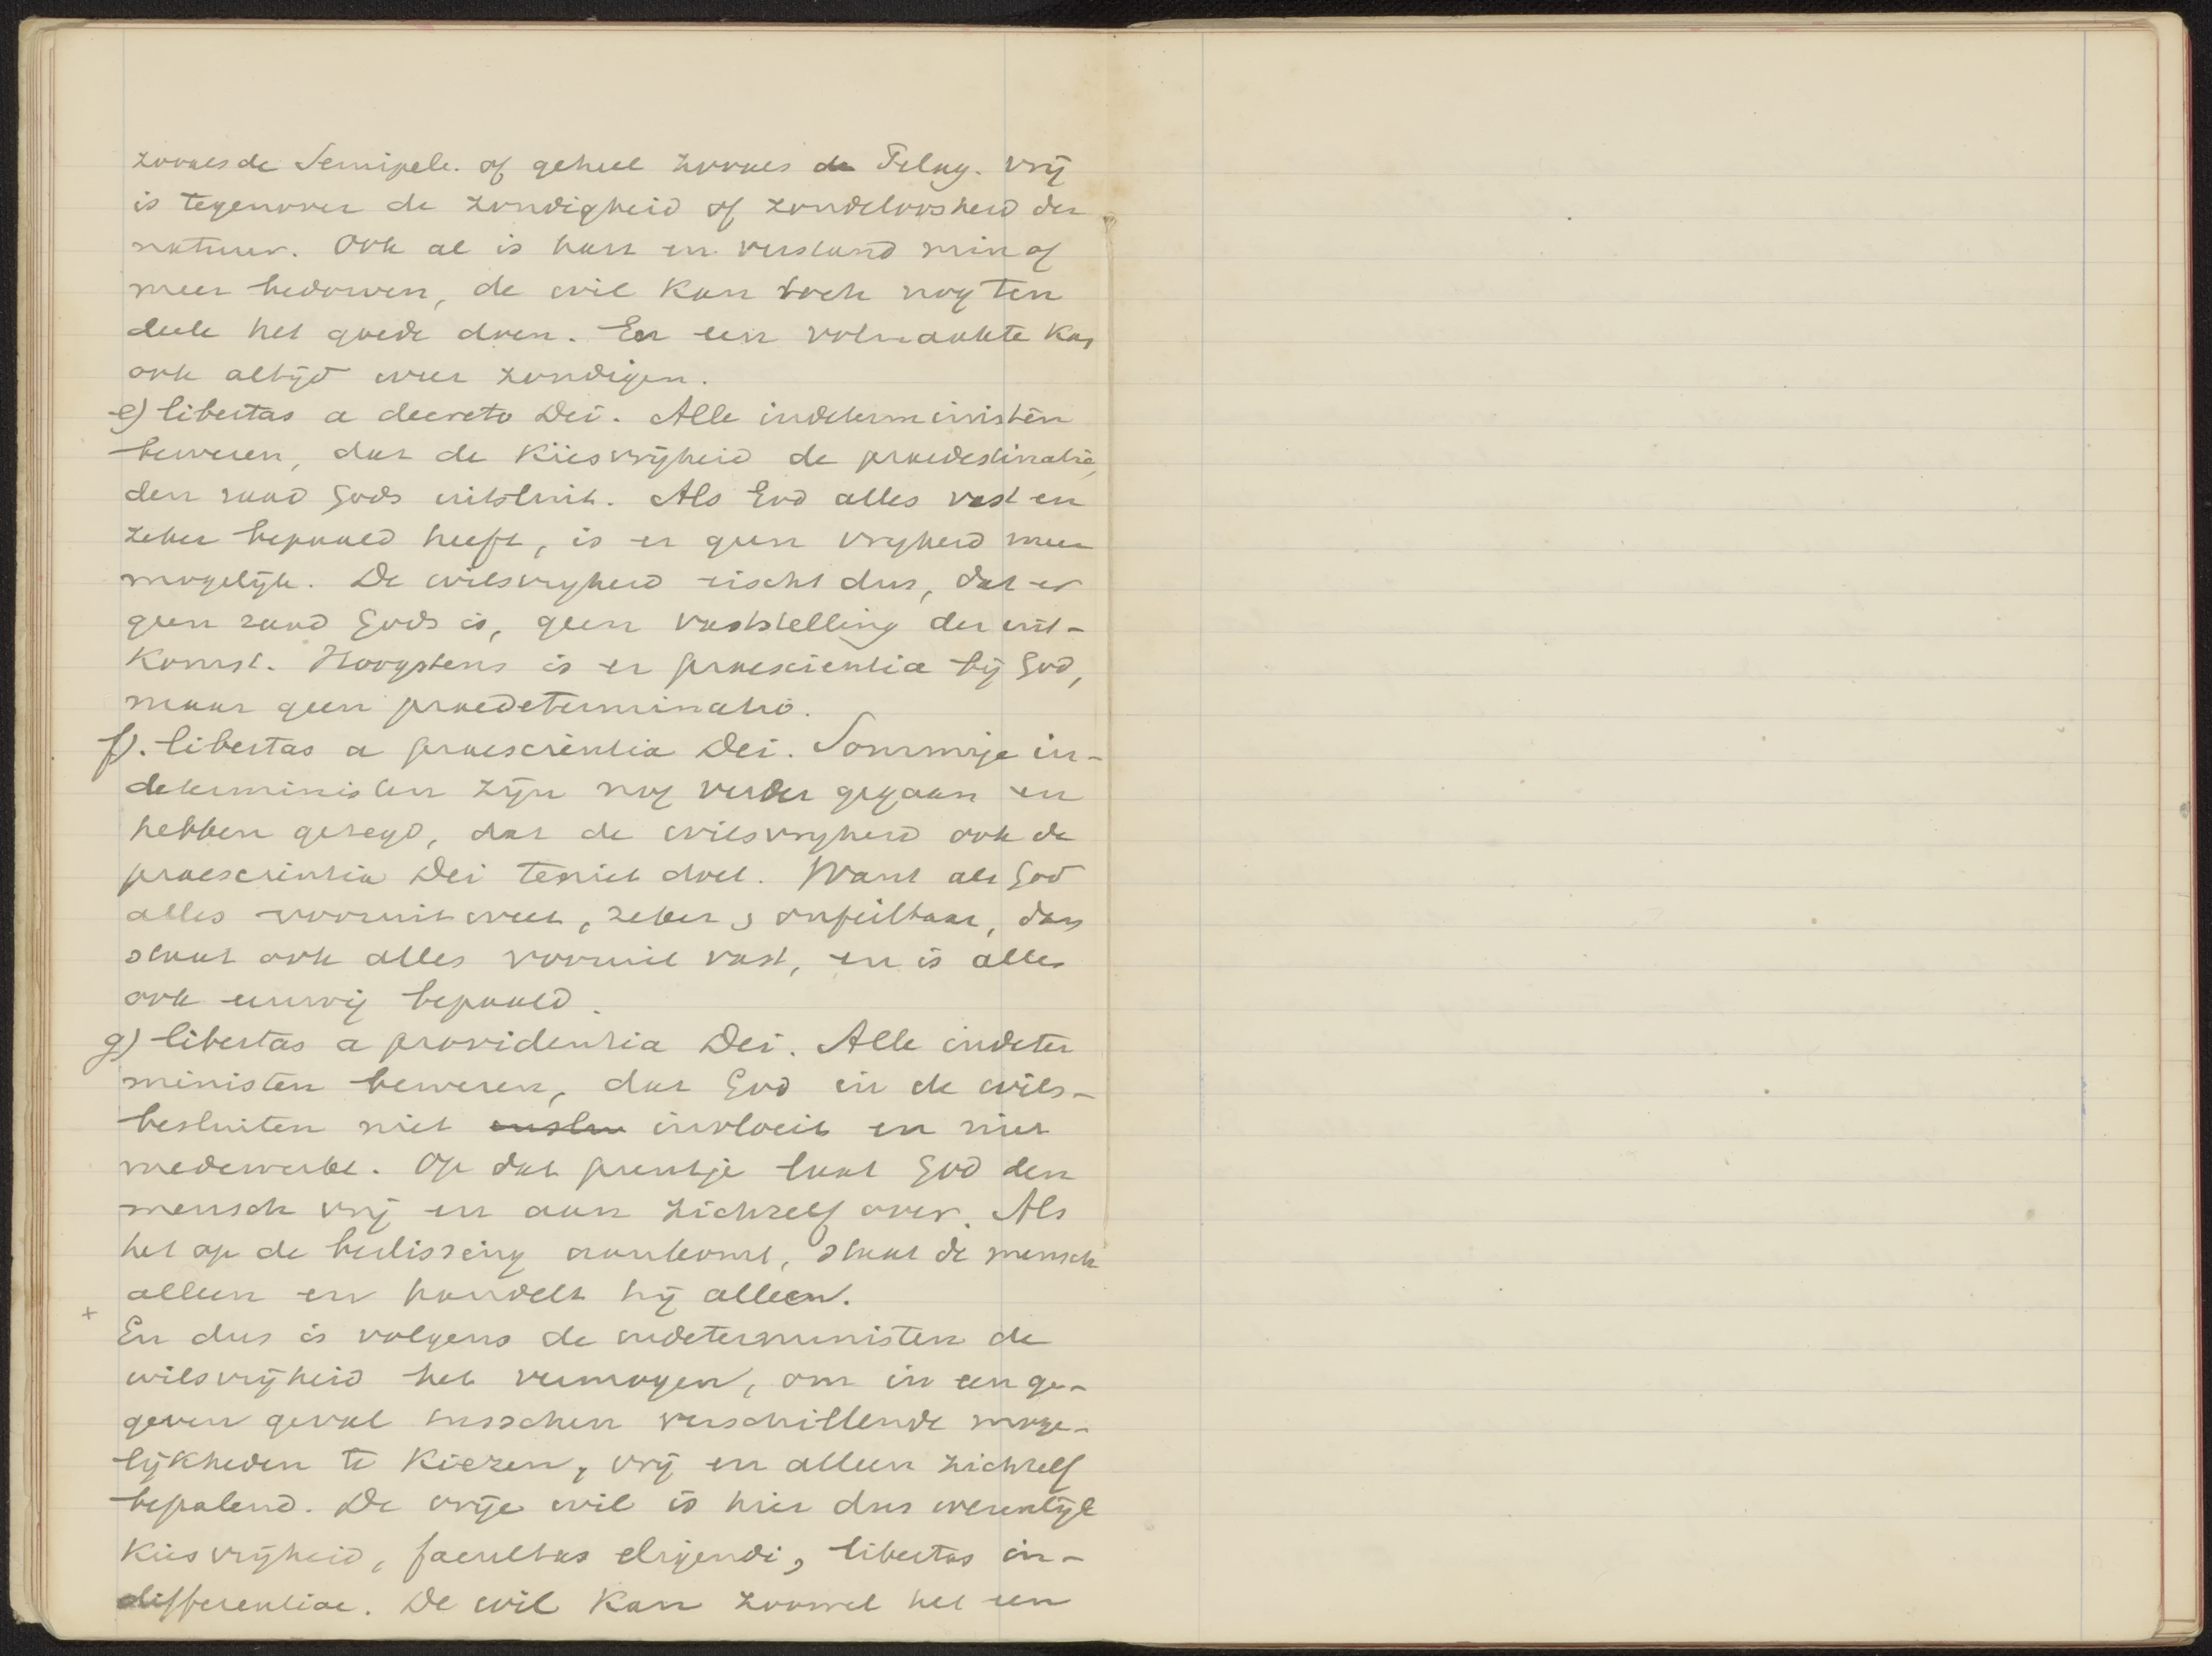 zooals de Semipele. of geheel zooals de Pelag. vrij
is tegenover de zondigheid of zondeloosheid der
natuur. Ook al is hart en verstand min of
meer bedorven, de wil kan toch nog ten
deele het goede doen. En een volmaakte kan
ook altijd weer zondigen.
e) libertas a decreto Dei. Alle indeterministen
beweren, dat de Kiesvrijheid de praedestinatie,
den raad Gods uitsluit. Als God alles vast en
zeker bepaald heeft, is er geen vrijheid meer
mogelijk. De wilsvrijheid eischt dus, dat er
geen raad Gods is, geen vaststelling der uit-
komst. Hoogstens is er praescientia bij God,
maar geen praedeterminatio.
f). libertas a praescientia Dei. Sommige in-
deterministen zijn nog verder gegaan en
hebben gezegd, dat de wilsvrijheid ook de
praescientia Dei teniet doet. Want als God
alles vooruit weet, zeker, onfeilbaar, dan
staat ook alles vooruit vast, en is alles
ook eeuwig bepaald.
g) libertas a providentia Dei. Alle indeter
ministen beweren, dat God in de wils-
besluiten niet invloeit en niet
medewerkt. Op dat puntje laat God den
mensch vrij en aan zichzelf over. Als
het op de beslissing aankomt, staat de mensch
alleen en handelt hij alleen.
+
En dus is volgens de indeterministen de
wilsvrijheid het vermogen, om in een ge-
geven geval tusschen verschillende moge-
lijkheden te Kiezen, vrij en alleen zichzelf
bepalend. De vrije wil is hier dus wezenlijk
Kiesvrijheid, facultas eligendi, libertas in-
differentiae. De wil Kan zoowel het een